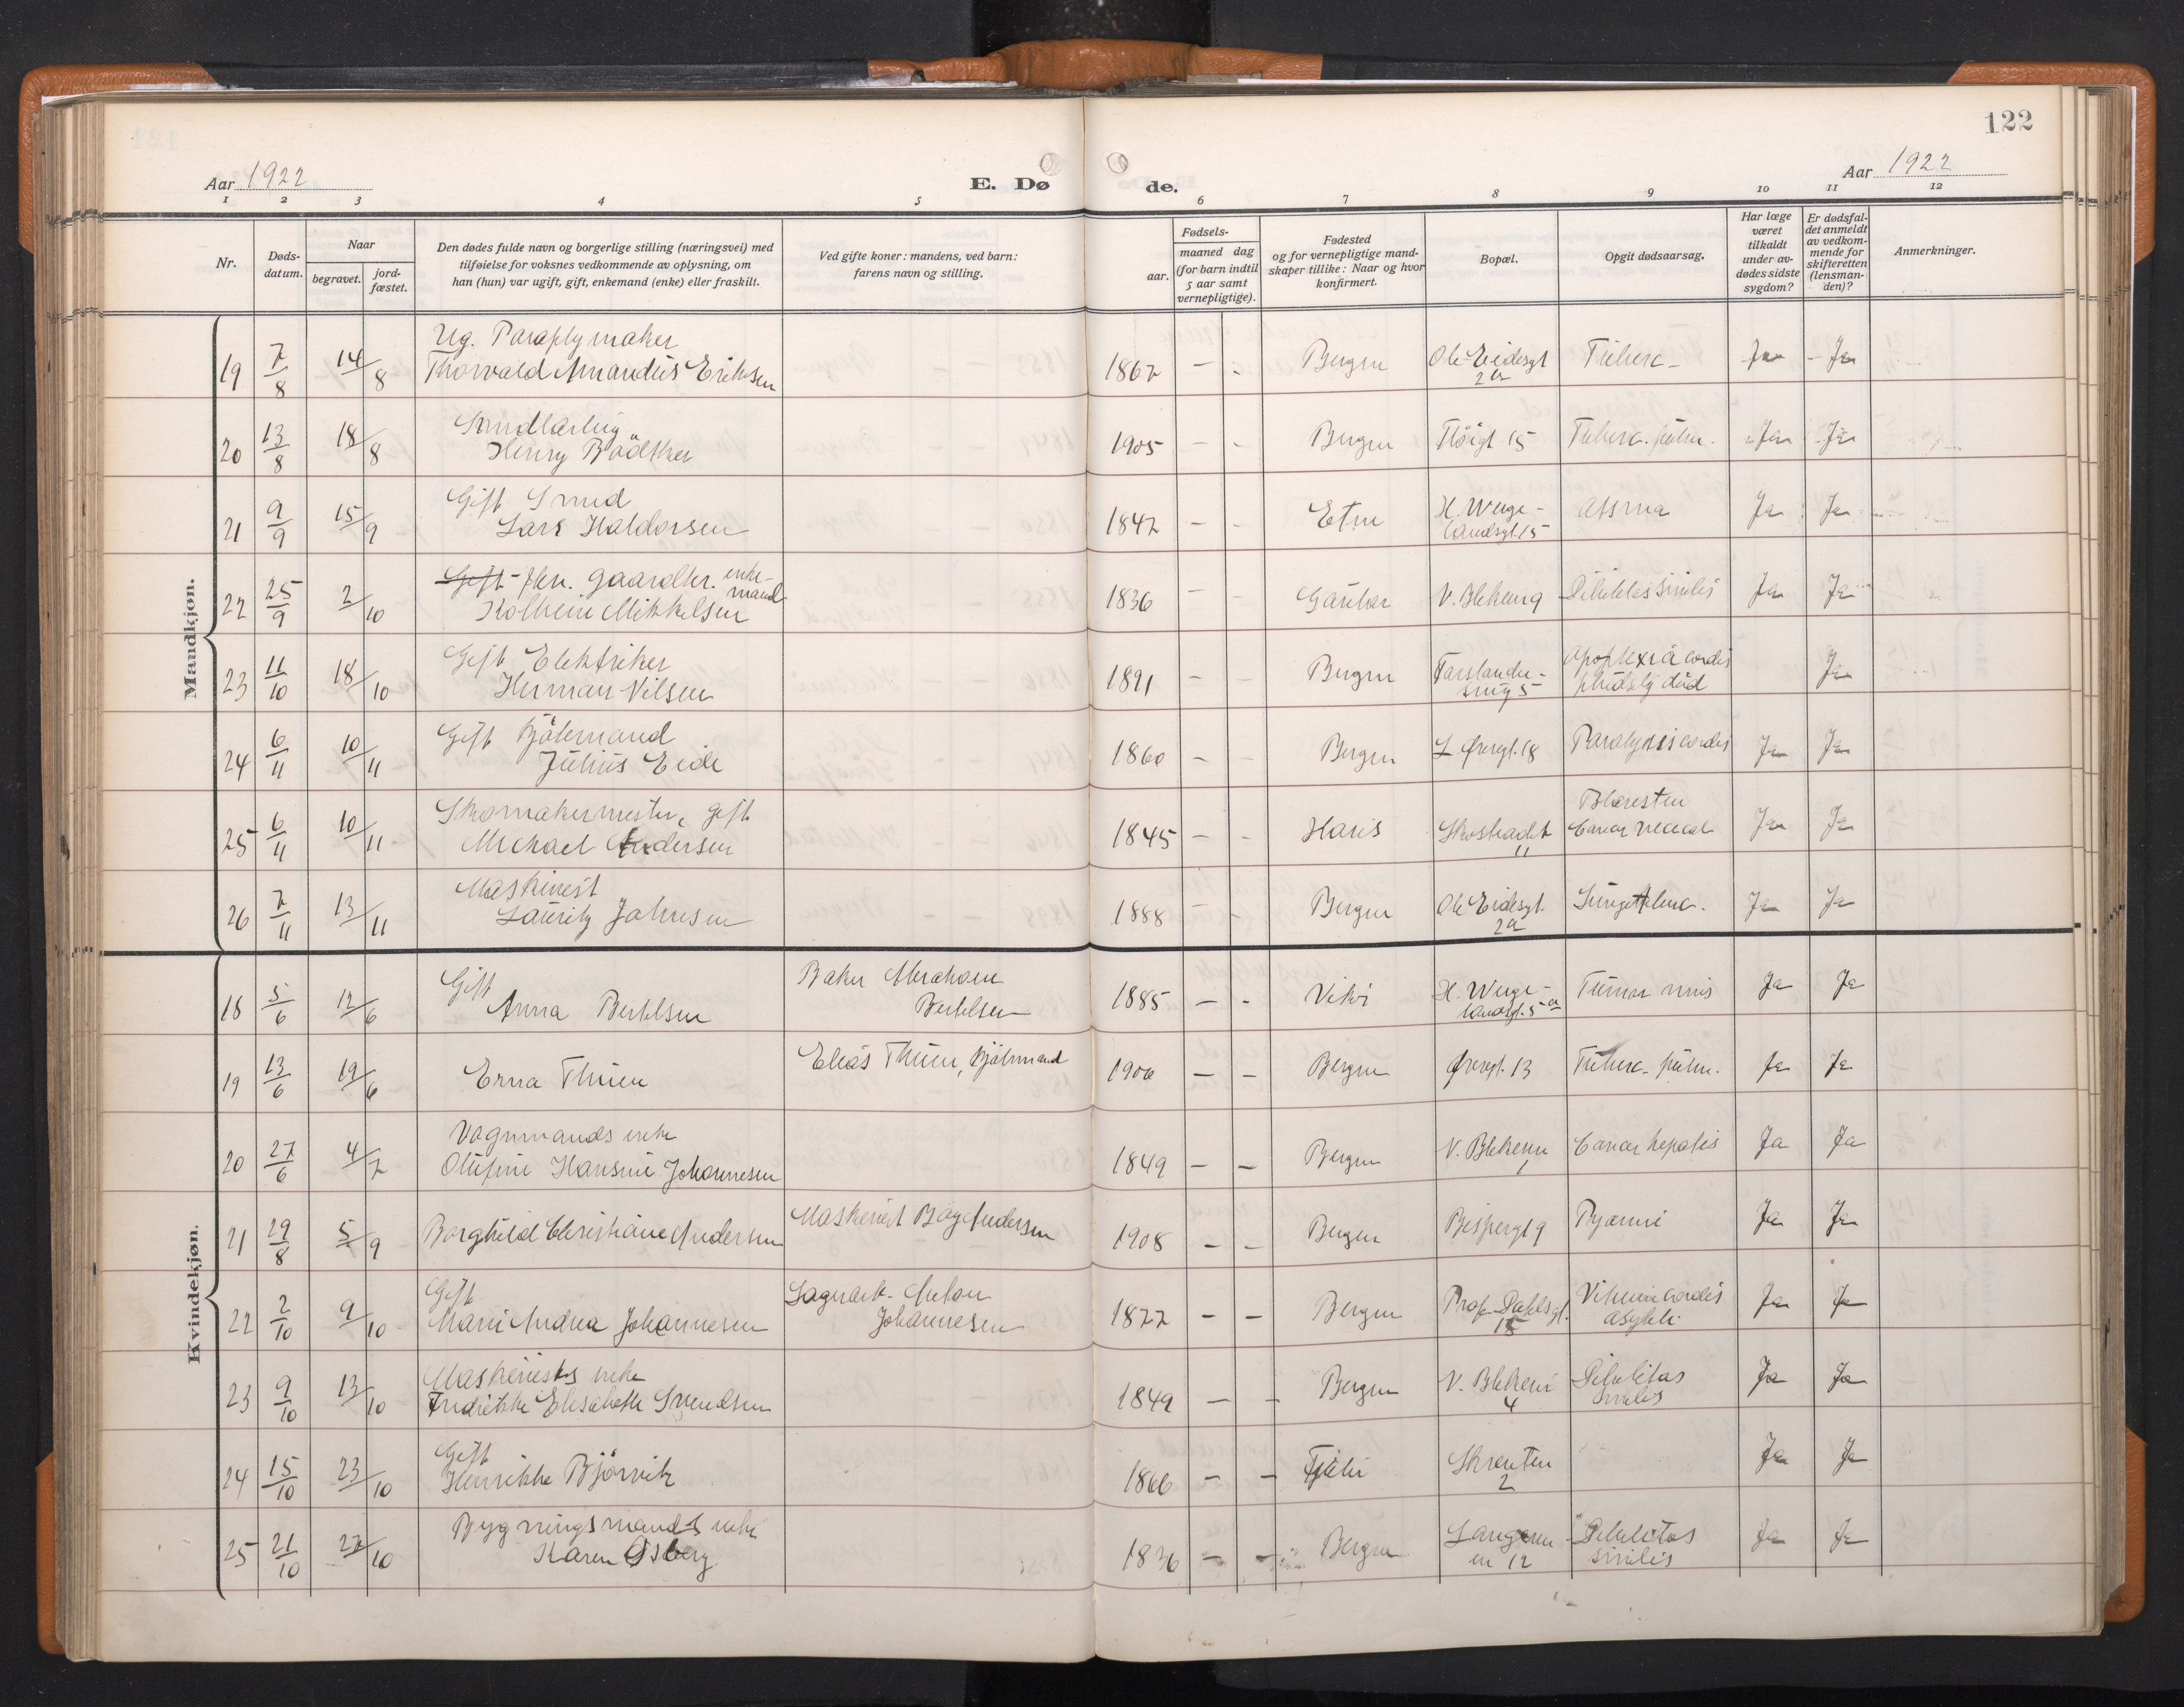 122
Aar 1922
E. Dø
de.
Aar 1922
1 2 3 4 5 6 7 8 9 10 11 12
Nr.
Døds-
datum.
Naar
begravet.
jord-
fæstet.
Den dødes fulde navn og borgerlige stilling (næringsvei) med
tilføielse for voksnes vedkommende av oplysning, om
han (hun) var ugift, gift, enkemand (enke) eller fraskilt.
Ved gifte koner: mandens, ved barn:
farens navn og stilling.
Fødsels-
aar.
maaned dag
(for barn indtil
5 aar samt
vernepligtige).
Fødested
og for vernepligtige mand-
skaper tillike: Naar og hvor
konfirmert.
Bopæl.
Opgit dødsaarsag.
Har læge
været
tilkaldt
under av-
dødes sidste
sygdom?
Er dødsfal-
det anmeldt
av vedkom-
mende for
skifteretten
(lensman-
den)?
Anmerkninger.
Mandkjøn.
Ug. Paraplymaker
19 7/8 14/8 Thorvald Amandus Eriksen 1867 - - Bergen Ole Eidesgt Tuberc- Ja - Ja
2a
Smedlærling
20 13/8 18/8 Henry Bödtker 1905 - - Bergen Fløigt. 15 Tuberc. pulm. Ja Ja
Gift Smed
21 9/9 15/9 Lars Haldorsen 1842 - - Etne H. Werge- Assma Ja Ja
landsgt. 15
Gift fhv. gaardbr. enke-
mand
22 25/9 2/10 Kolbein Mikkelsen 1836 - - Gaular V. Blekenv 9 Debilitas senilis Ja Ja
Gift Elektriker
23 11/10 18/10 Herman Nilsen 1891 - - Bergen Apoplexia cordis Ja
pludselig död
Gift Bjölemand
24 6/11 10/11 Julius Eide 1860 - - Bergen L Øvregt. 18 Paralysis cordis Ja Ja
Skomakermester, gift
Blæresten
25 6/11 10/11 Michael Andersen 1845 - - Haus Skostrædt Ja Ja
11
Maskinist
26 7/11 13/11 Lauritz Johnsen 1888 - - Bergen Ole Eidesgt. Lungetuberc. Ja Ja
2a
Kvindekjøn.
Gift Baker Abraham
18 5/6 12/6 Anna Bertelsen Bertelsen 1885 - - Vikör H. Werge- Tumor Ja Ja
landsgt. 5a
19 13/6 19/6 Erna Thuen Elias Thuen, Bjölemand 1906 - - Bergen Øvregt. 13 Tuberc. pulm. Ja Ja
Vognmands enke
20 27/6 4/7 Olufine Hansine Johannesen 1849 - - Bergen V. Blekenv Cancer hepatis Ja Ja
1
21 29/8 5/9 Borghild Christiane Andersen Maskinist Andersen 1908 - - Bergen Bispengt 9 Pyæmi Ja Ja
Gift Anton
22 2/10 9/10 Marie Andrea Johannesen Johannesen 1877 - - Bergen Prof. Dahlsgt. Vitium cordis Ja Ja
15
Maskinists enke
23 9/10 13/10 Fredrikke Elisabeth Svendsen 1849 - - Bergen V. Blekenv Debilitas Ja Ja
4 senilis
Gift
24 15/10 23/10 Henrikke Björvik 1866 - - Fjeler Skrenten Ja Ja
2
Bygningsmands enke
25 21/10 27/10 Karen Osberg 1836 - - Bergen Debilitas Ja Ja
12 senilis